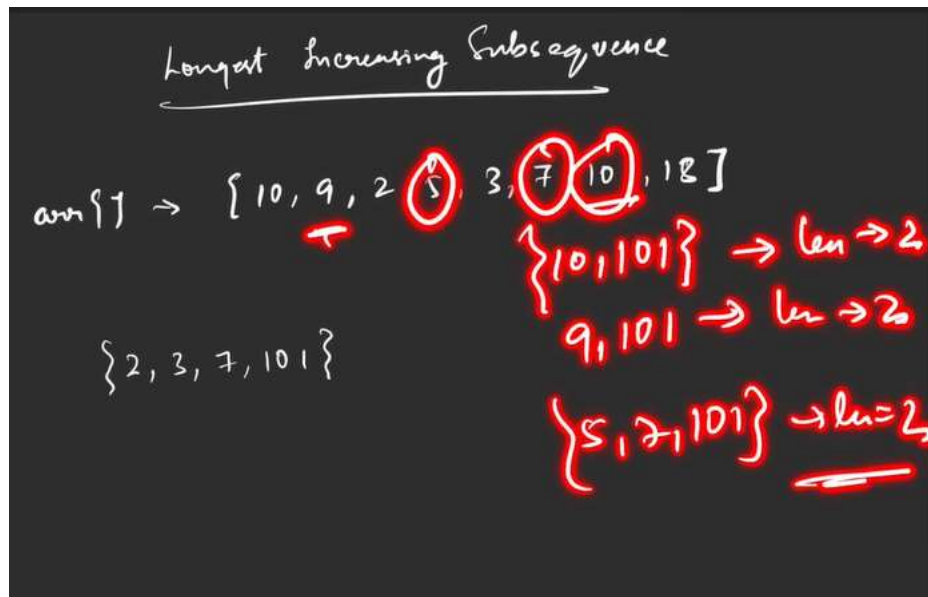 Longest Increasing Subsequence
arr[] → {10, 9, 2 5, 3, 7 10, 18]
{10, 101} → len → 2
9, 101 → len → 2
{2, 3, 7, 101}
{5, 7, 101} → len = 2